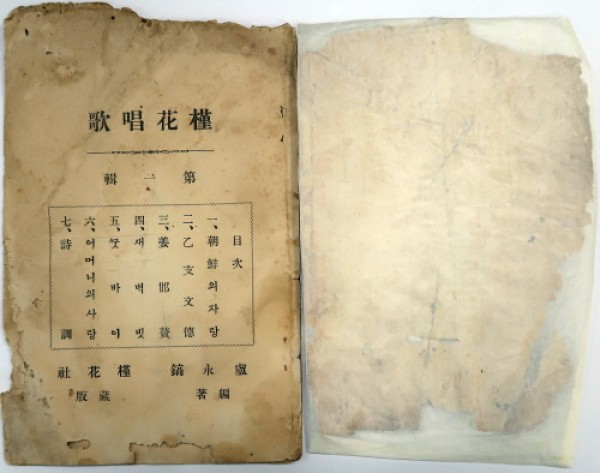 槿花唱歌
第一輯
目次
一、朝鮮의자랑
二、乙支文德
三、姜邯賛
四、새벽빗
五、 바이
六、어머니의사랑
七、詩調
盧永鎬 槿花社
編著 藏版